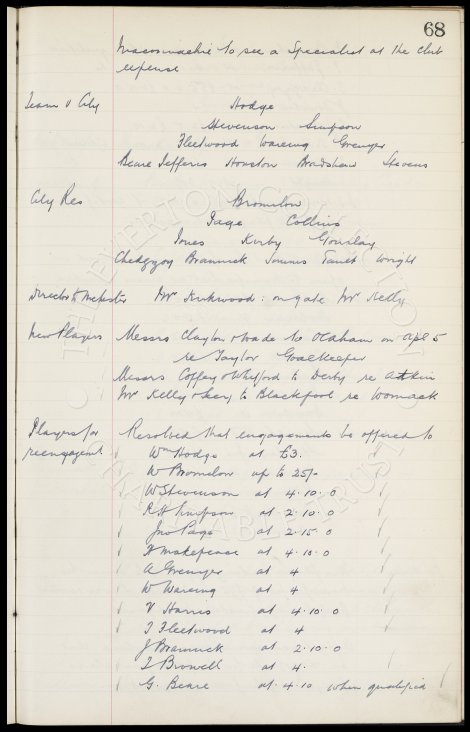 68
to see a Specialist at the club
expense
Team v City Hodge
Stevenson Simpson
Fleetwood Wareing Grenyer
Beare Jefferis Houston Bradshaw Stevens
City Res Bromilow
Page Collins
Jones Kirby Gourlay
Chedgzoy Brannick Simms Tanet Wright
Director to Mr Kirkwood : on gate Mr Kelly
New Players Messrs Clayton & Wade to Oldham on Apl 5
re Taylor Goalkeeper
Messrs Coffey & Whitford to Derby re Atkin
Mr Kelly to Blackpool re Womack
Players for Resolved that engagements be offered to
reengagemt Wm Hodge at £3.
W Bromilow up to 25/-
W Stevenson at 4.10.0
R H Simpson at 2.10.0
Jno Page at 2.15.0
H Makepeace at 4.10.0
A Grenyer at 4
W Wareing at 4
V Harris at 4.10.0
T Fleetwood at 4
J Brannick at 2.10.0
T Browell at 4.
G. Beare at 4.10 when qualified
THE EVERTON COLLECTION CHARITABLE TRUST